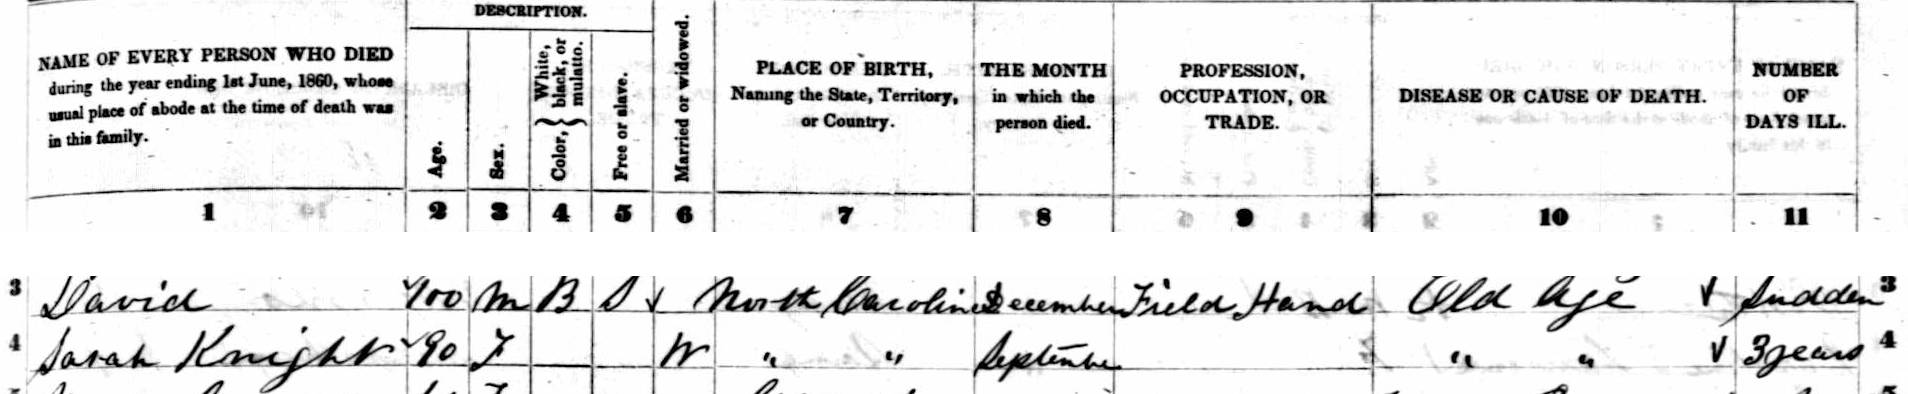 DESCRIPTION.
NAME OF EVERY PERSON WHO DIED
during the year ending 1st June, 1860, whose
usual place of abode at the time of death was
in this family.
Age.
Sex.
Color, { White, black, or mulatto.
Free or slave.
Married or widowed.
PLACE OF BIRTH,
Naming the State, Territory,
or Country.
THE MONTH
in which the
person died.
PROFESSION,
OCCUPATION, OR
TRADE.
DISEASE OR CAUSE OF DEATH.
NUMBER
OF
DAYS ILL.
1 2 3 4 5 6 7 8 9 10 11
3 David 100 M B S North Carolina December Field Hand Old Age Sudden 3
4 Sarah Knight 90 F W " " September " " 3 years 4